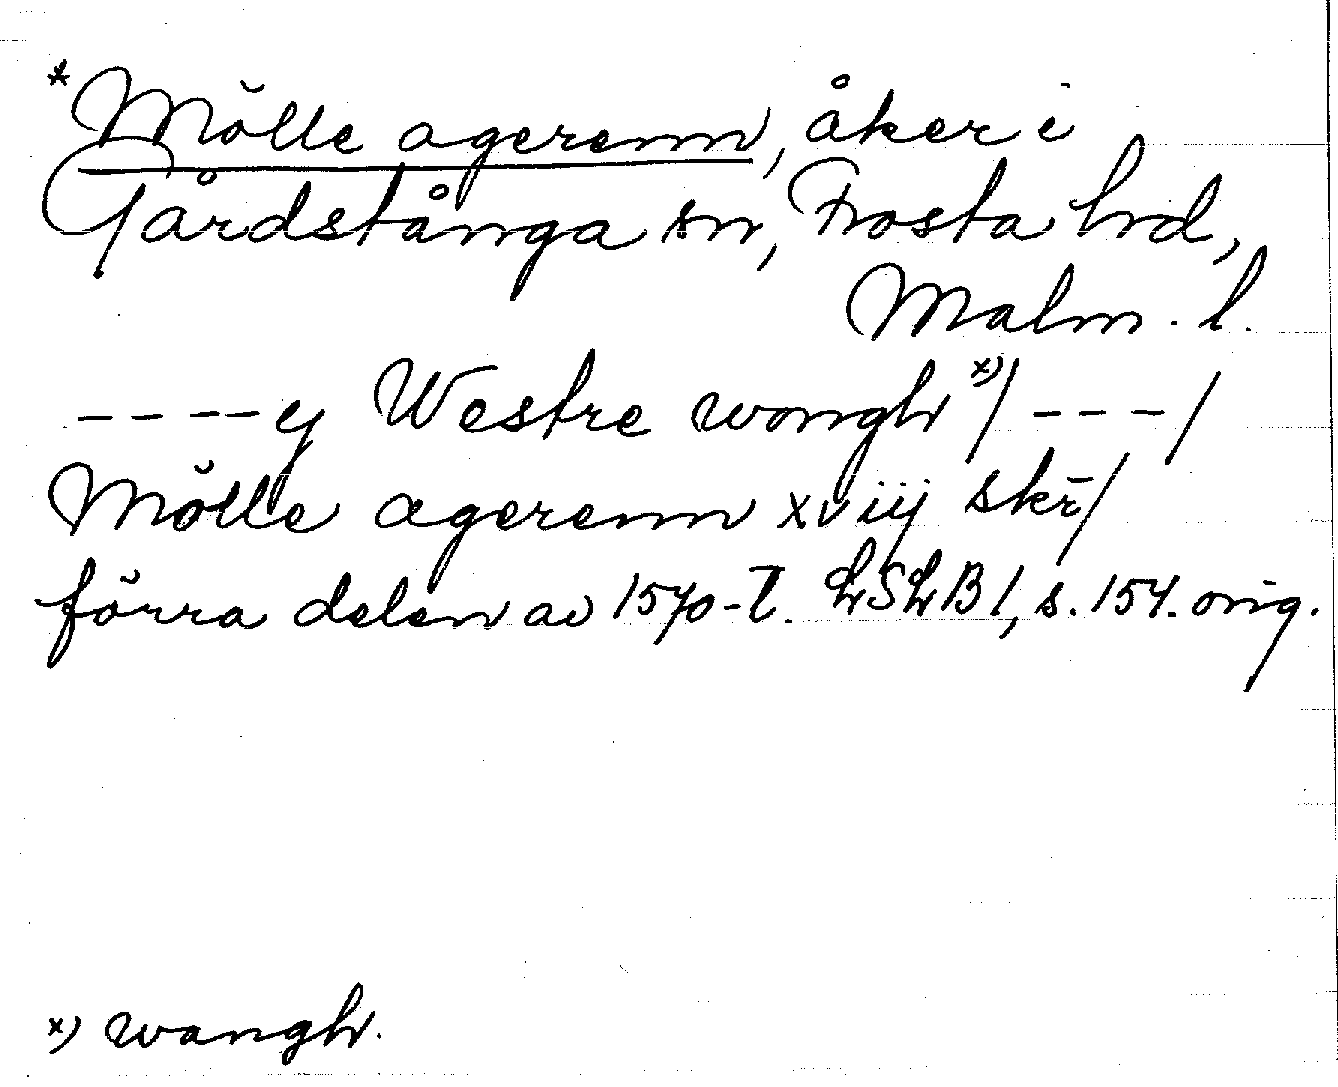 *Mölle agerenn, åker i
Gårdstånga sn, Frosta hd,
Malm. l.
----ij Westre wongh x)/ ---/
Mölle agerenn xviij skr̄/
förra delen av 1570-t. LSLB1, s. 154. orig.
x) wangh.